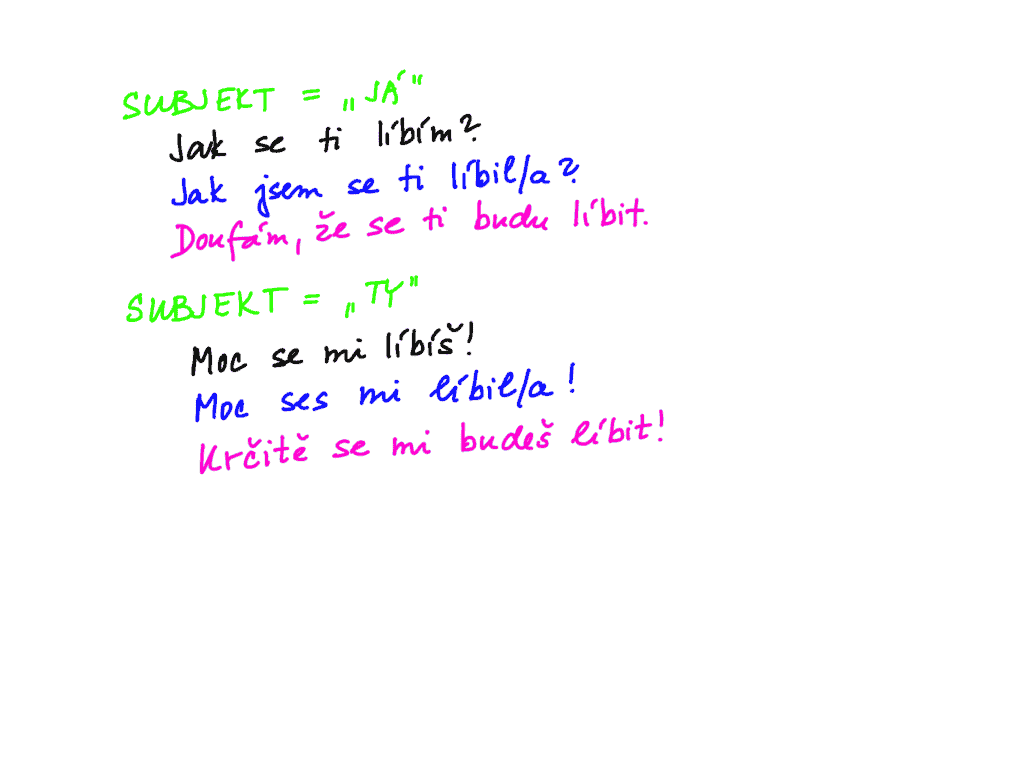 SUBJEKT = „JÁ"
Jak se ti líbím?
Jak jsem se ti líbil/a?
Doufám, že se ti budu líbit.
SUBJEKT = „TY"
Moc se mi líbíš!
Moc ses mi líbil/a!
Krčitě se mi budeš líbit!